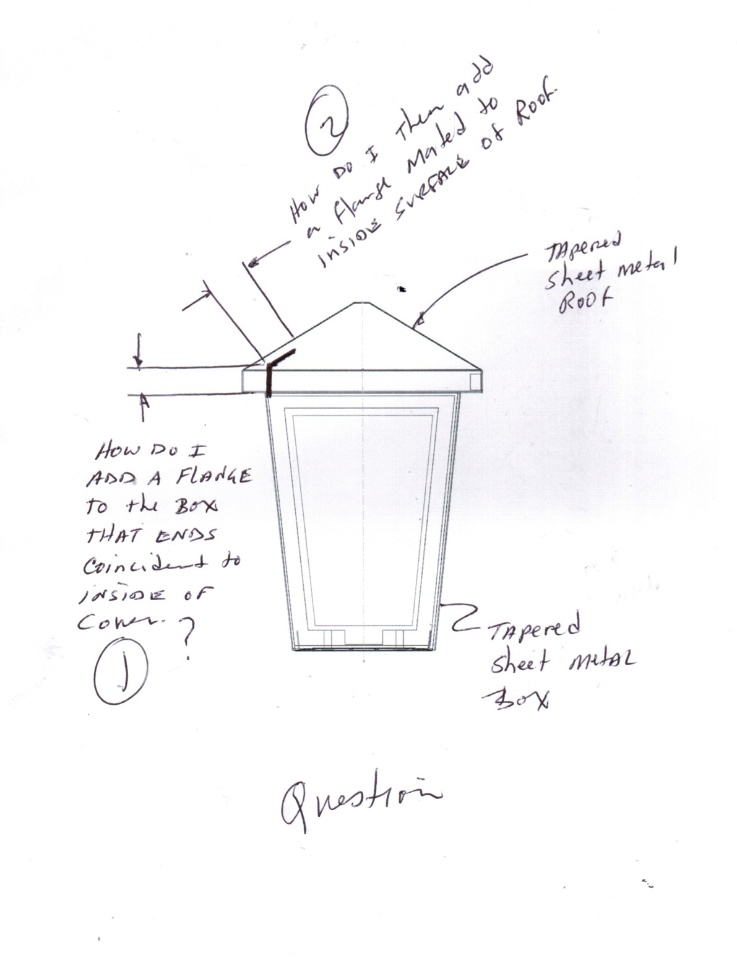 2
How Do I Then add
a Flange Mated to
INSIDE SURFACE OF ROOF.
TApered
Sheet metal
ROOF
HOW DO I
ADD A FLANGE
to the BOX
THAT ENDS
Coincident to
INSIDE OF
Cover. ?
1
TApered
Sheet METAL
BOX
Question